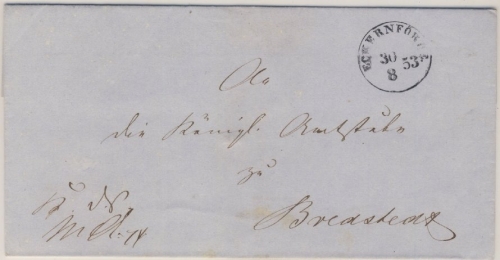 ECKERNFÖRDE
30 53
8
An
die Königl. Amtstube
zu
K. d. S.
Bredstedt